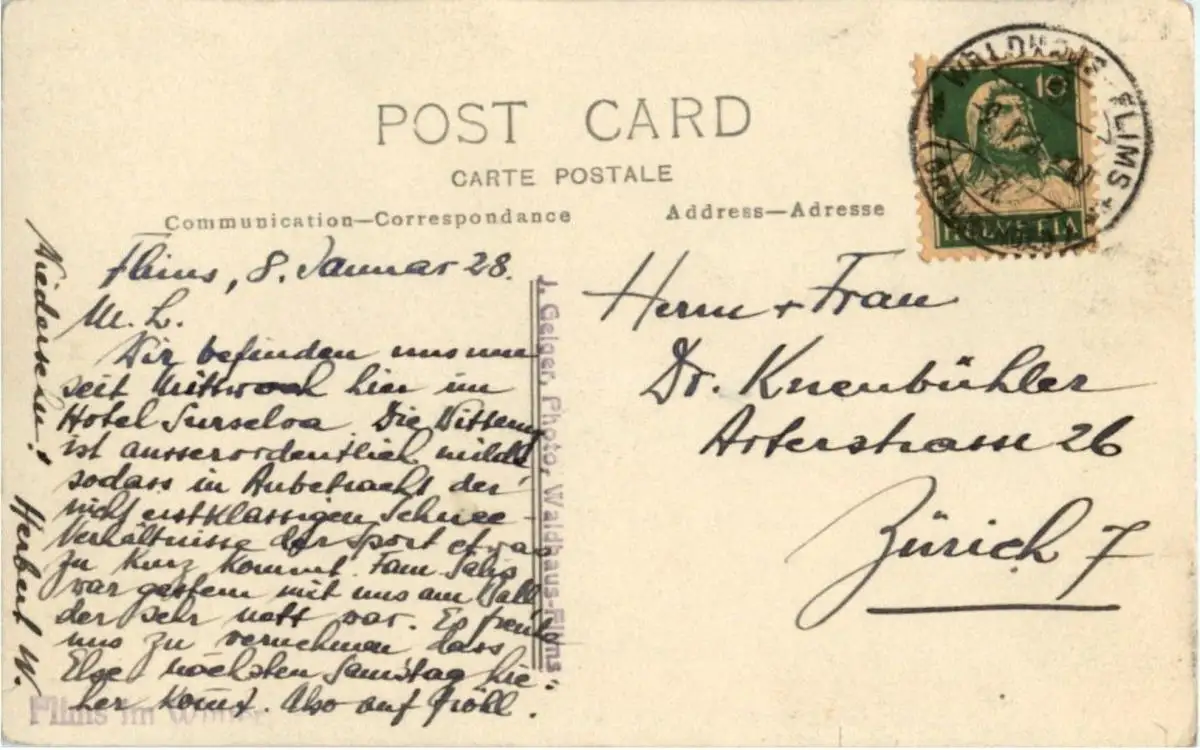 POST CARD
CARTE POSTALE
Communication—Correspondance
Address—Adresse
WALDHAUS-FLIMS
10
HELVETIA
Flims, 8. Januar 28.
M. L.
Wir befinden uns nun
seit Mittwoch hier im
Hotel Surselva. Die Witterung
ist ausserordentlich milde
sodass in Anbetracht der
nicht erstklassigen Schnee-
Verhältnisse der Sport etwas
zu Kurz kommt. Fam.
war gestern mit uns am Ball
der sehr nett war. Es freute
uns zu vernehmen dass
Else nächsten Samstag hie-
her kommt. Also auf fröhl.
Wiedersehen!
Herbert W.
J. Geiger, Photo, Waldhaus-Flims
Herrn + Frau
Dr. Knenbühler
Arterstrasse 26
Zürich 7
Flims im Winter